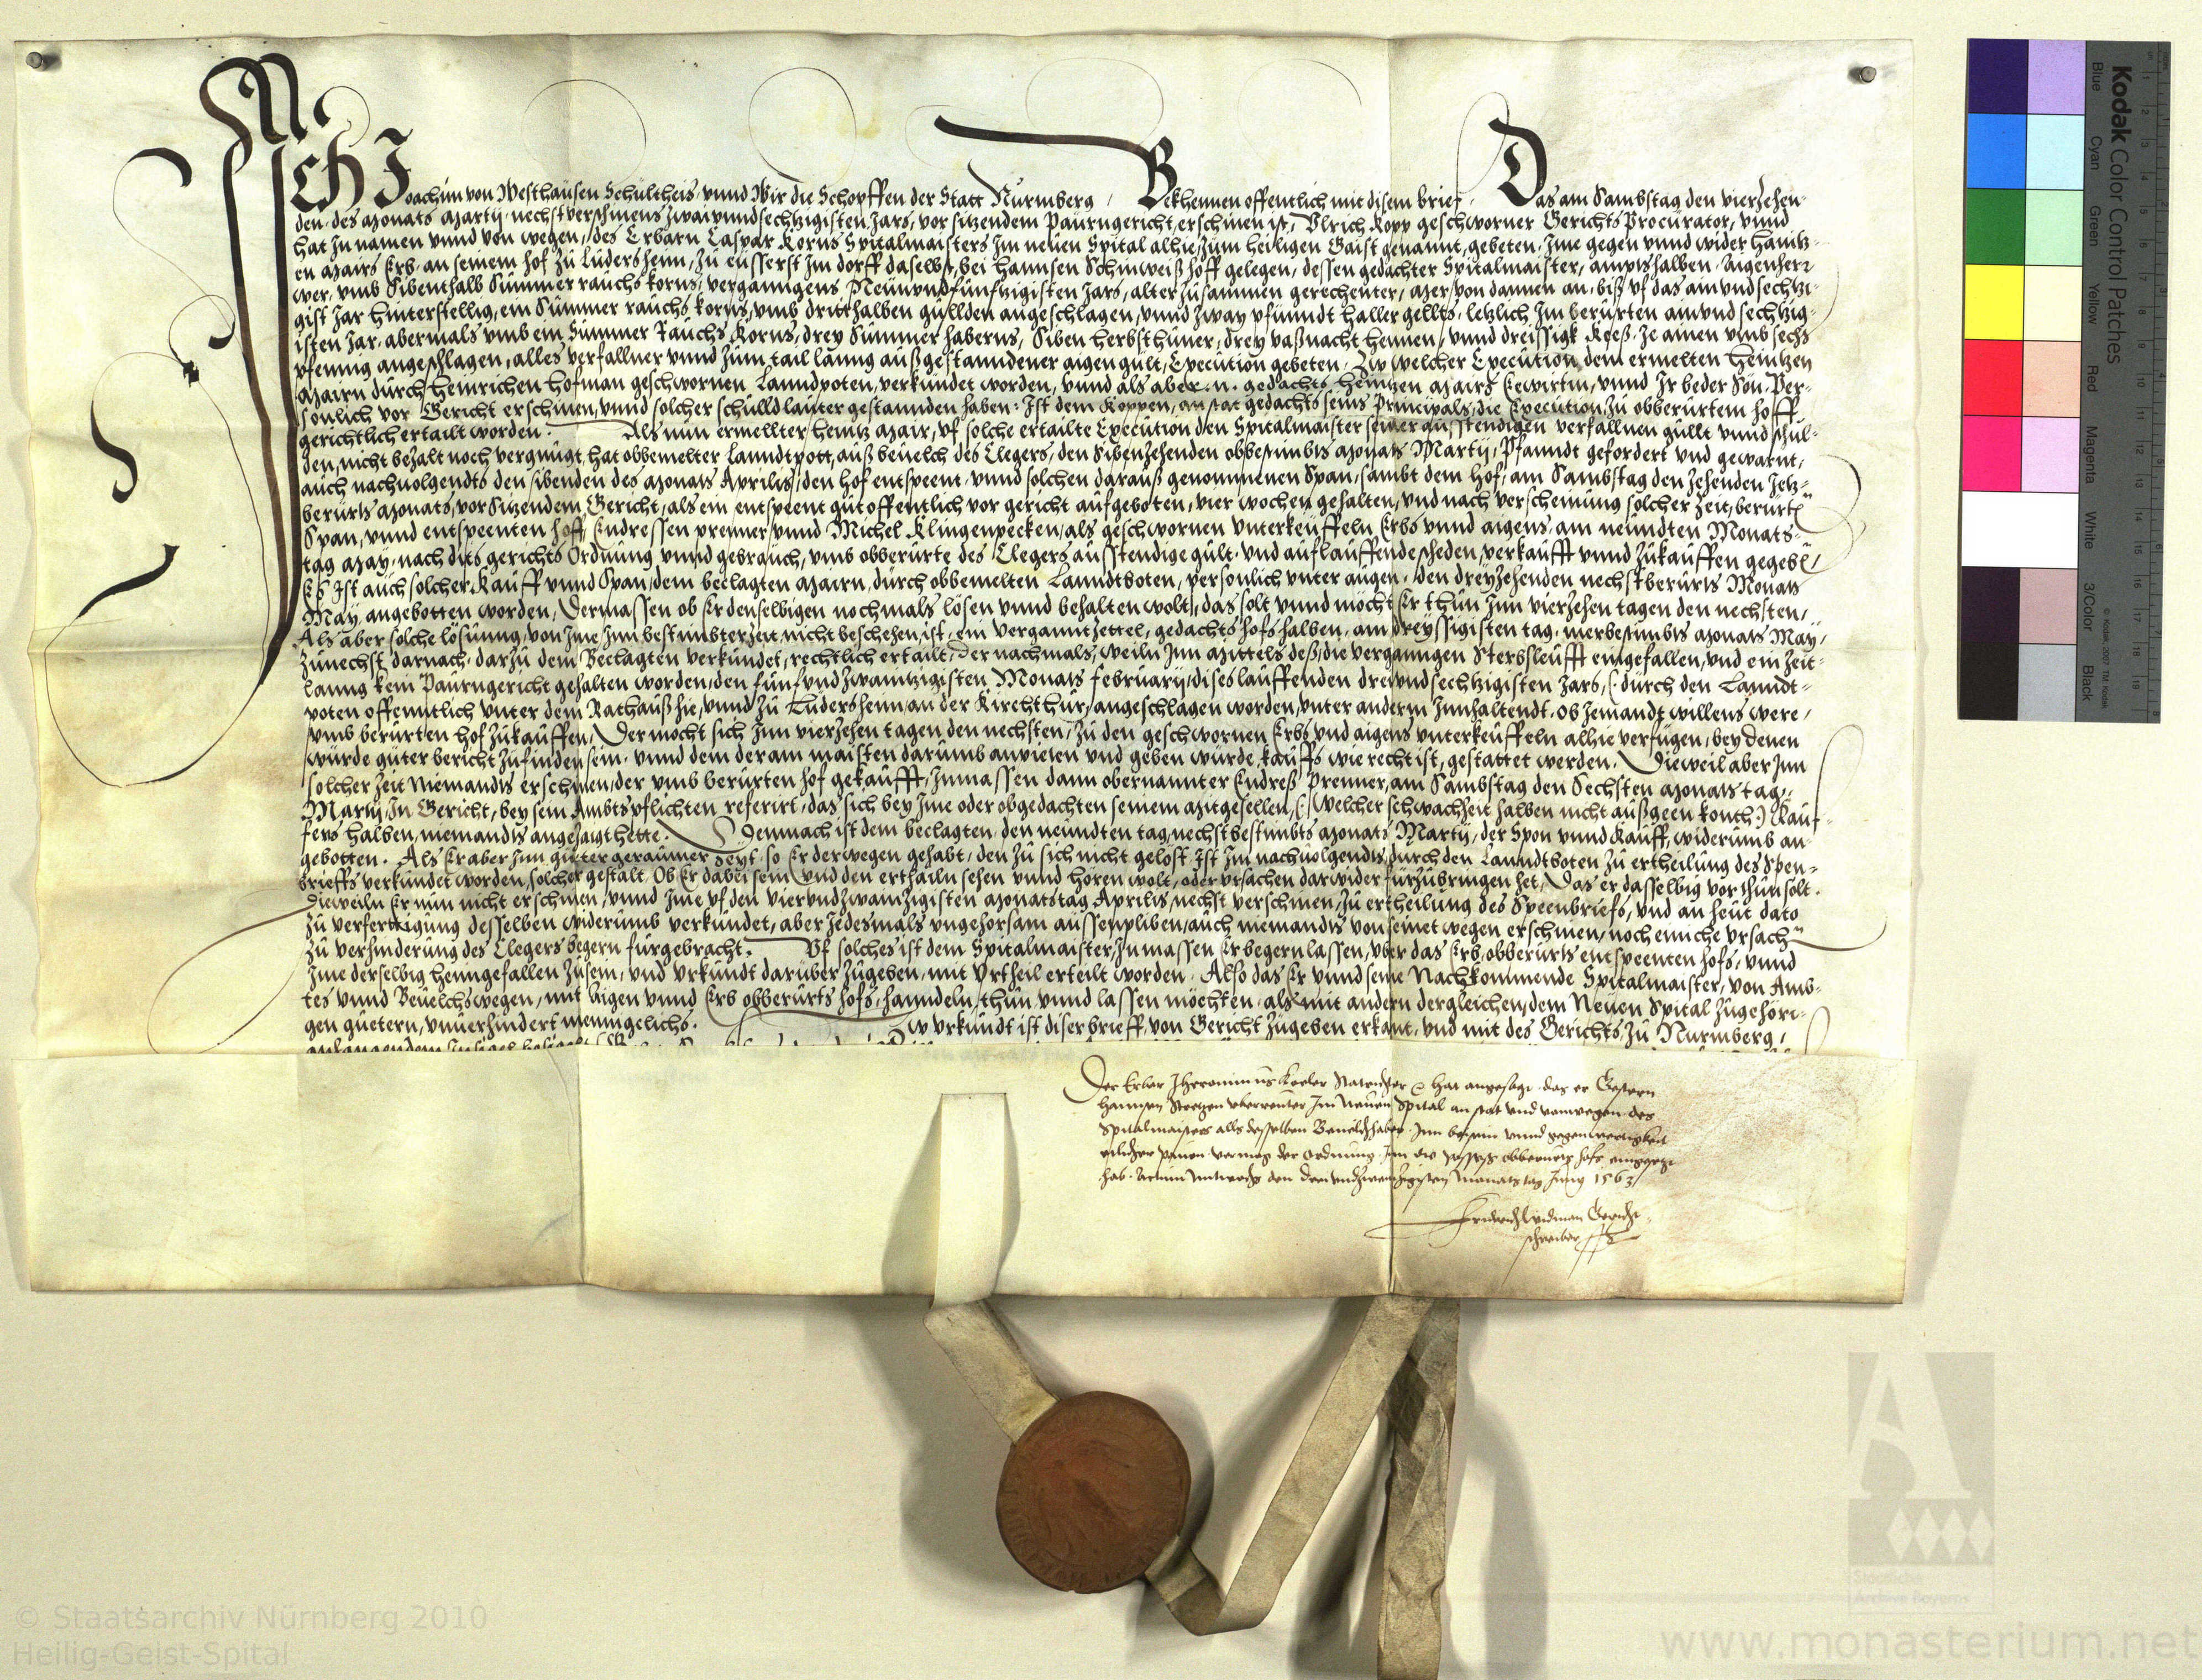 Ich Joachim von Westhausen Schultheis, vnnd Wir die Schopffen der Statt Nurmberg, Bekhennen offentlich mit disem brief, Das am Sambstag den vierzehen-
den, des Monats Martij, nechst verschinens zwaivnndsechtzigisten Jars, vor sitzendem Paurngericht, erschinen ist, Vlrich Kopp geschworner Gerichts Procurator, vnnd
hat In namen vnnd von wegen, des Erbarn Caspar Korns Spitalmaisters Im neuen Spital alhie, zum heiligen Gaist genannt, gebeten, Ime gegen vnnd wider Haintz-
en Mairs Erb, an seinem hof zu Ludershenn, zu eusserst Im dorff daselbst, bei Hannsen Schinweiß hoff gelegen, dessen gedachter Spitalmaister, ampts halben Aigenherr
wer, vmb Sibenthalb Summer rauchs korns, verganngens Neunvndfunfftzigisten Jars, alter zusammen gerechenter, Mer von dannen an, biß vf das ainvndsechtzi-
gist Jar hinterstellig, ein Summer rauchs korns, vmb dritthalben gullden angeschlagen, vnnd zway pfunndt haller gellts, letzlich Im berurten ainvnd sechtzig-
isten Jar, abermals vmb ein Summer Rauchs Korns, drey Summer haberns, Siben herbsthuner, drey vaßnacht hennen, vnnd dreissigk Keeß, Je ainen vmb sechs
pfennig angeschlagen, alles verfallner vnnd zum tail lanng außgestanndener aigen gult, Execution gebeten. Zu welcher Execution, dem ermelten Heintzen
Mairn durch Heinrichen Hofman geschwornen Lanndpoten, verkundet worden, vnnd als aber .n. gedachts Heintzen Mairs Eewirtin, vnnd Ir beder Son, Per-
sonlich vor Gericht erschinen, vnnd solcher schulld lauter gestannden haben: Ist dem Koppen, an stat gedachts seins Principals, die Execution, zu obberurtem hoff,
gerichtlich ertailt worden. Als nun ermellter Heintz Mair, vf solche ertailte Execution den Spitalmaister seiner ausstendigen verfallnen gullt vnnd schul-
den, nicht bezalt noch vergnugt, hat obbemelter Lanndtpott, auß beuelch des Clegers, den Sibenzehenden obbestimbts Monats Martij, Pfanndt gefordert vnd gewarnt,
auch nachuolgendts den sibenden des Monats Aprilis, den hof entspeent, vnnd solchen darauß genommenen Span, sambt dem hof, am Sambstag den zehenden Jetz-
berurts Monats, vor Sitzendem Gericht, als ein entspeent gut offentlich vor gericht aufgeboten, vier wochen gehalten, vnd nach verscheinung solcher zeit, berurten
Span, vnnd entspeenten hoff, Endressen premer, vnnd Michel Klingenpecken, als geschwornen vnterkeuffeln Erbs vnnd aigens, am neundten Monats-
tag May, nach dits gerichts Ordnung vnnd gebrauch, vmb obberurte des Clegers ausstendige gult, vnd auflauffende scheden, verkaufft vnnd zukauffen gegeben,
Es Ist auch solcher Kauff vnnd Span, dem beclagten Mairn, durch obbemelten Lanndtboten, personlich vnter augen, den dreyzehenden nechst berurts Monats
May angebotten worden, Dermassen ob Er denselbigen nochmals lösen vnnd behalten wolt, das solt vnnd möcht Er thun Inn vierzehen tagen den nechsten,
Als aber solche lösunng, von Ime Inn bestimbter zeit, nicht beschehen, ist, ein vergannt zettel, gedachts hofs halben, am dreyssigisten tag, merbestimbts Monats May,
zunechst darnach, darzu dem Beclagten verkundet, rechtlich ertailt, Der nachmals, weiln Inn Mittels deß, die verganngen Sterbsleufft eingefallen, vnd ein zeit-
lanng kein Paurngericht gehalten worden, den funfvndzwaintzigisten Monats februarij, dises lauffenden dreivndsechtzigisten Jars, durch den Lanndt-
poten offenntlich vnter dem Rathauß hie, vnnd zu Ludershenn, an der Kirchthur, angeschlagen worden, vnter anderm Innhaltendt, ob Jemandt willens were,
vmb berurten hof zukauffen, Der mocht sich Inn vierzehen tagen den nechsten, zu den geschwornen Erbs vnd aigens vnterkeuffeln alhie verfugen, bey denen
wurde guter bericht zufinden sein, vnnd dem der am maisten darumb anbieten vnd geben wurde, kauffs wie recht ist, gestattet werden. Dieweil aber Inn
solcher zeit Niemandts erschinen, der vmb berurten hof gekaufft, Inmassen dann obernannter Endreß Premer, am Sambstag den Sechsten Monats tag,
Martij, In Gericht, bey sein Ambtspflichten referirt, das sich bey Ime oder obgedachten seinem Mitgesellen, (welcher schwachheit halben nicht außgeen konth) Kauf-
fens halben, niemandts angesagt hette. Demnach ist dem beclagten, den neundten tag, nechst bestimbts Monats Martij, der Spon vnnd Kauff, widerumb an-
gebotten. Als Er aber Inn guter geraumer Zeyt, so Er derwegen gehabt, den zu sich nicht gelost, Ist Im nachuolgendts, durch den Lanndtboten zu ertheilung des Spen-
brieffs verkundet worden, solcher gestalt, Ob Er dabei sein, vnd den erthailn sehen vnnd horen wolt, oder vrsachen darwider furzubringen het, Das er dasselbig vor thun solt.
Dieweiln Er nun nicht erschinen, vnnd Ime vf den viervndzwaintzigisten Monatstag Aprilis, nechst verschinen, zu ertheilung des Speenbriefs, vnd an heut dato
zu verfertigung desselben widerumb verkundet, aber Jedesmals vngehorsam aussenpliben, auch niemandts von seinet wegen erschinen, noch ainiche vrsachen
zu verhinderung des Clegers begern furgebracht. Vf solches ist dem Spitalmaister, In massen Er begern lassen, vber das Erb, obberurts entspeenten hofs, vnnd
Ime derselbig heimgefallen zusein, vnd vrkundt daruber zugeben, mit Vrtheil erteilt worden. Also das Er vnnd seine Nachkommende Spitalmaister, von Amb-
tes vnnd Beuelchs wegen, mit Aigen vnnd Erb obberurts hofs, hanndeln, thun vnnd lassen möchten, als mit andern dergleichen, dem Neuen Spital zugehöri-
gen guetern, vnuerhindert menniglichs. Zu vrkundt ist diser brieff, von Gericht zugeben erkant, vnd mit des Gerichts zu Nurmberg,
Der Erbar Jheronimus Koeler hat angesagt, das er Gestern
Hannsen im Neuen Spital an stat vnd vonwegen des
Spitalmaisters alls desselben Beuelchhaber, Inn beysein vnnd gegenwertigkeit
vermog der ordnung, Inn obberurts hofs eingesetzt
hab. Actum Mitwochs den dreivndzwentzigsten Monats tag Junij 1563
Fridrich Lindman Gericht-
schreiber
Kodak Color Control Patches
Blue Cyan Green Yellow Red Magenta White 3/Color Black
© Kodak, 2007 TM: Kodak
© Staatsarchiv Nürnberg 2010
Heilig-Geist-Spital
Staatliche
Archive Bayerns
www.monasterium.net